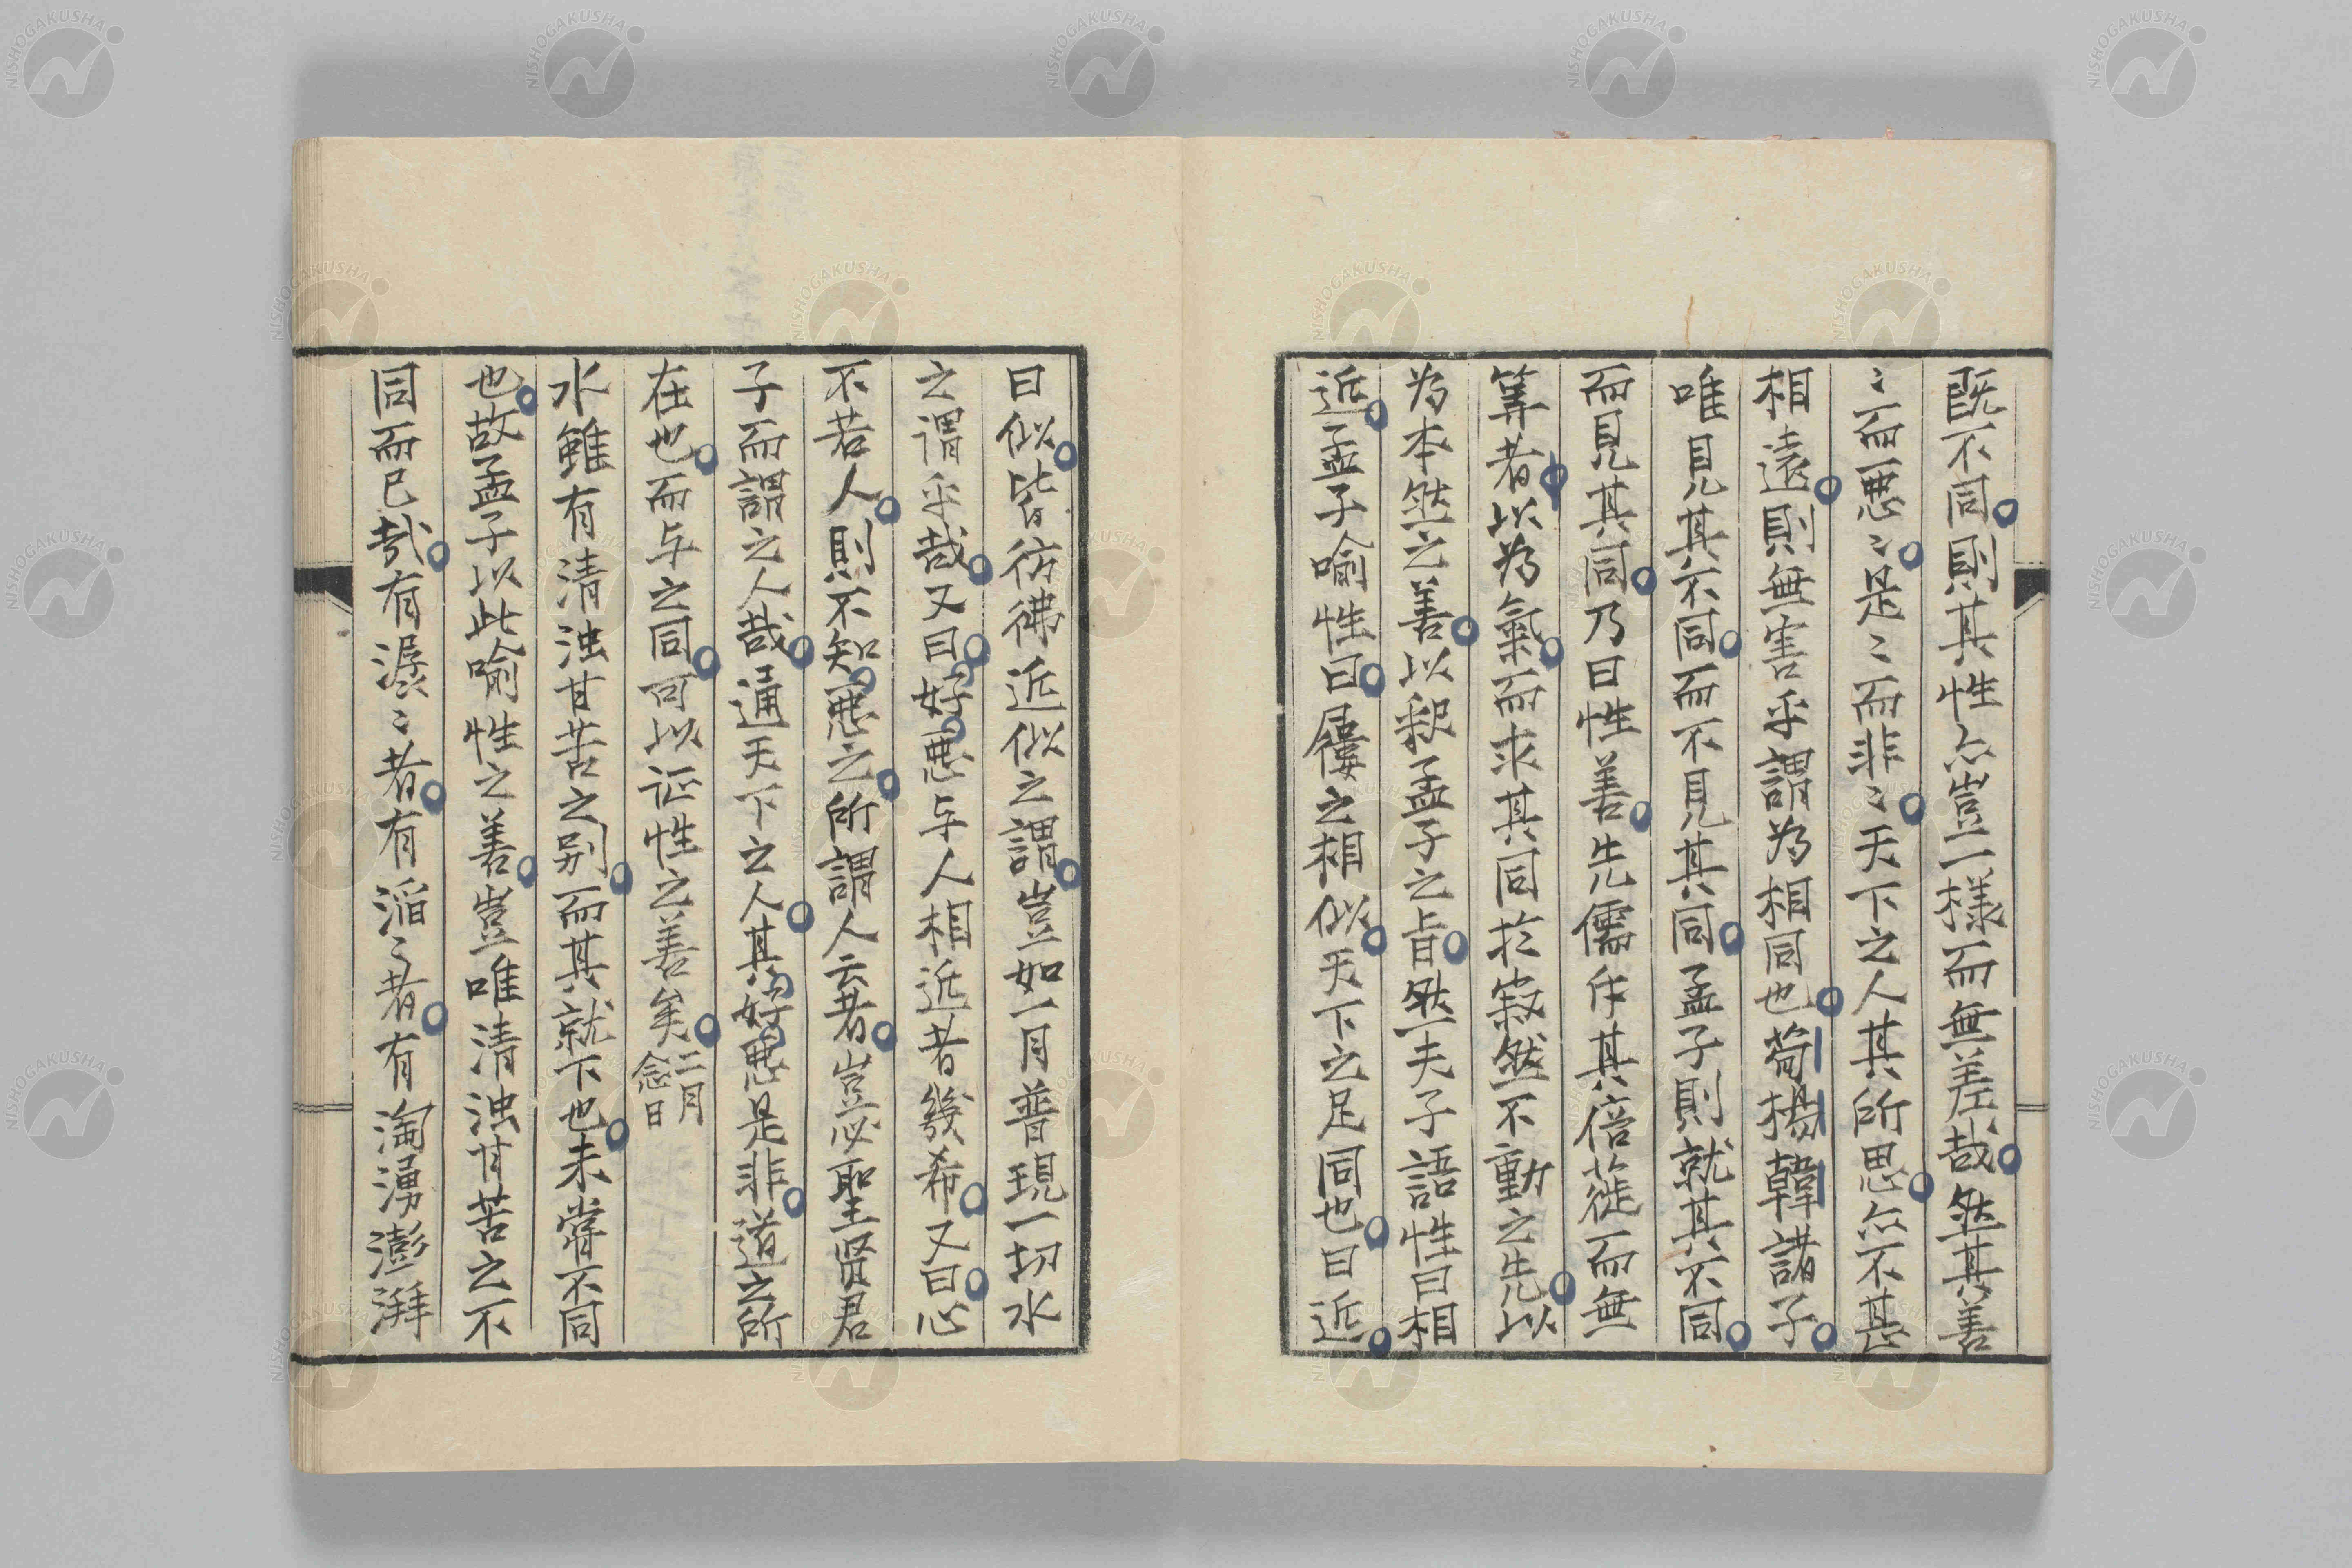 既不同則其性亦豈一様而無差哉然其善
〻而悪〻是〻而非〻天下之人其所思亦不甚
相遠則無害乎謂為相同也荀楊韓諸子
唯見其不同而不見其同孟子則就其不同
而見其同乃曰性善先儒斥其倍蓰而無
筭者以為氣而求其同於寂然不動之先以
為本然之善以釈孟子之旨然夫子語性曰相
近孟子喻性曰屨之相似天下之足同也曰近
曰似皆彷彿近似之謂豈如一月普現一切水
之謂乎哉又曰好悪与人相近者幾希又曰心
不若人則不知悪之所謂人云者豈必聖賢君
子而謂之人哉通天下之人其好悪是非道之所
在也而与之同可以证性之善矣二月念日
水雖有清浊甘苦之别而其就下也未嘗不同
也故孟子以此喻性之善豈唯清浊甘苦之不
同而已哉有潺〻者有滔〻者有淘湧澎湃
NISHOGAKUSHA